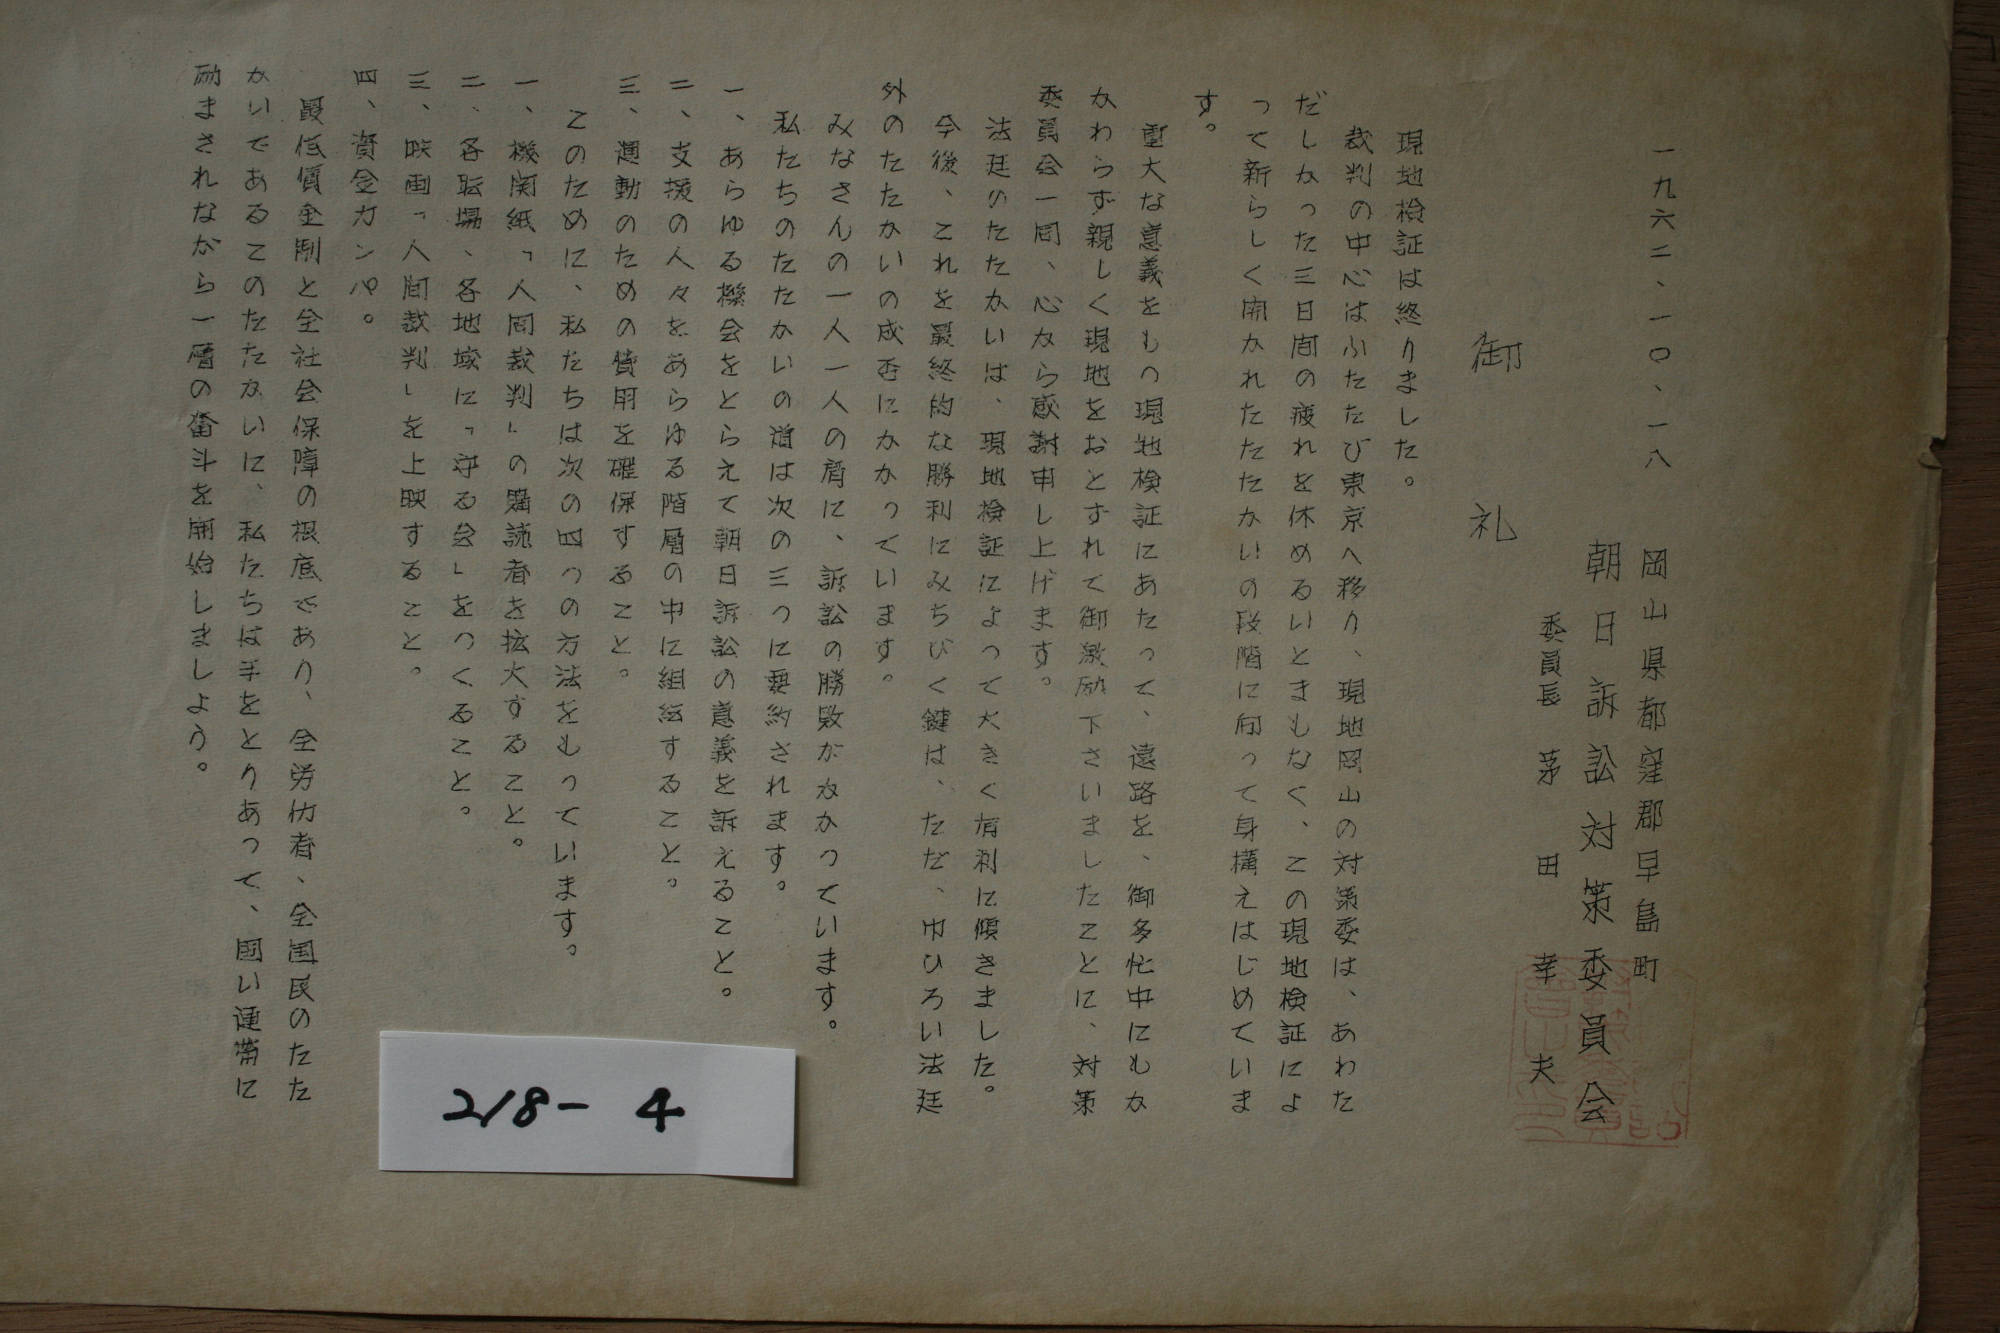 一九六二、一〇、一八
岡山県都窪郡早島町
朝日訴訟対策委員会
委員長 茅田幸夫
御礼
現地検証は終りました。
裁判の中心はふたたび東京へ移り、現地岡山の対策委は、あわた
だしかった三日間の疲れを休めるいとまもなく、この現地検証によ
って新らしく開かれたたたかいの段階に向って身構えはじめていま
す。
重大な意義をもつ現地検証にあたって、遠路を、御多忙中にもか
かわらず親しく現地をおとずれて御激励下さいましたことに、対策
委員会一同、心から感謝申し上げます。
法廷のたたかいは、現地検証によって大きく有利に傾きました。
今後、これを最終的な勝利にみちびく鍵は、ただ、巾ひろい法廷
外のたたかいの成否にかかっています。
みなさんの一人一人の肩に、訴訟の勝敗がかかっています。
私たちのたたかいの道は次の三つに要約されます。
一、あらゆる機会をとらえて朝日訴訟の意義を訴えること。
二、支援の人々をあらゆる階層の中に組織すること。
三、運動のための費用を確保すること。
このために、私たちは次の四つの方法をもっています。
一、機関紙「人間裁判」の購読者を拡大すること。
二、各職場、各地域に「守る会」をつくること。
三、映画「人間裁判」を上映すること。
四、資金カンパ。
最低賃金制と全社会保障の根底であり、全労仂者、全国民のたた
かいであるこのたたかいに、私たちは手をとりあって、固い連帯に
励まされながら一層の奮斗を開始しましょう。
218-4